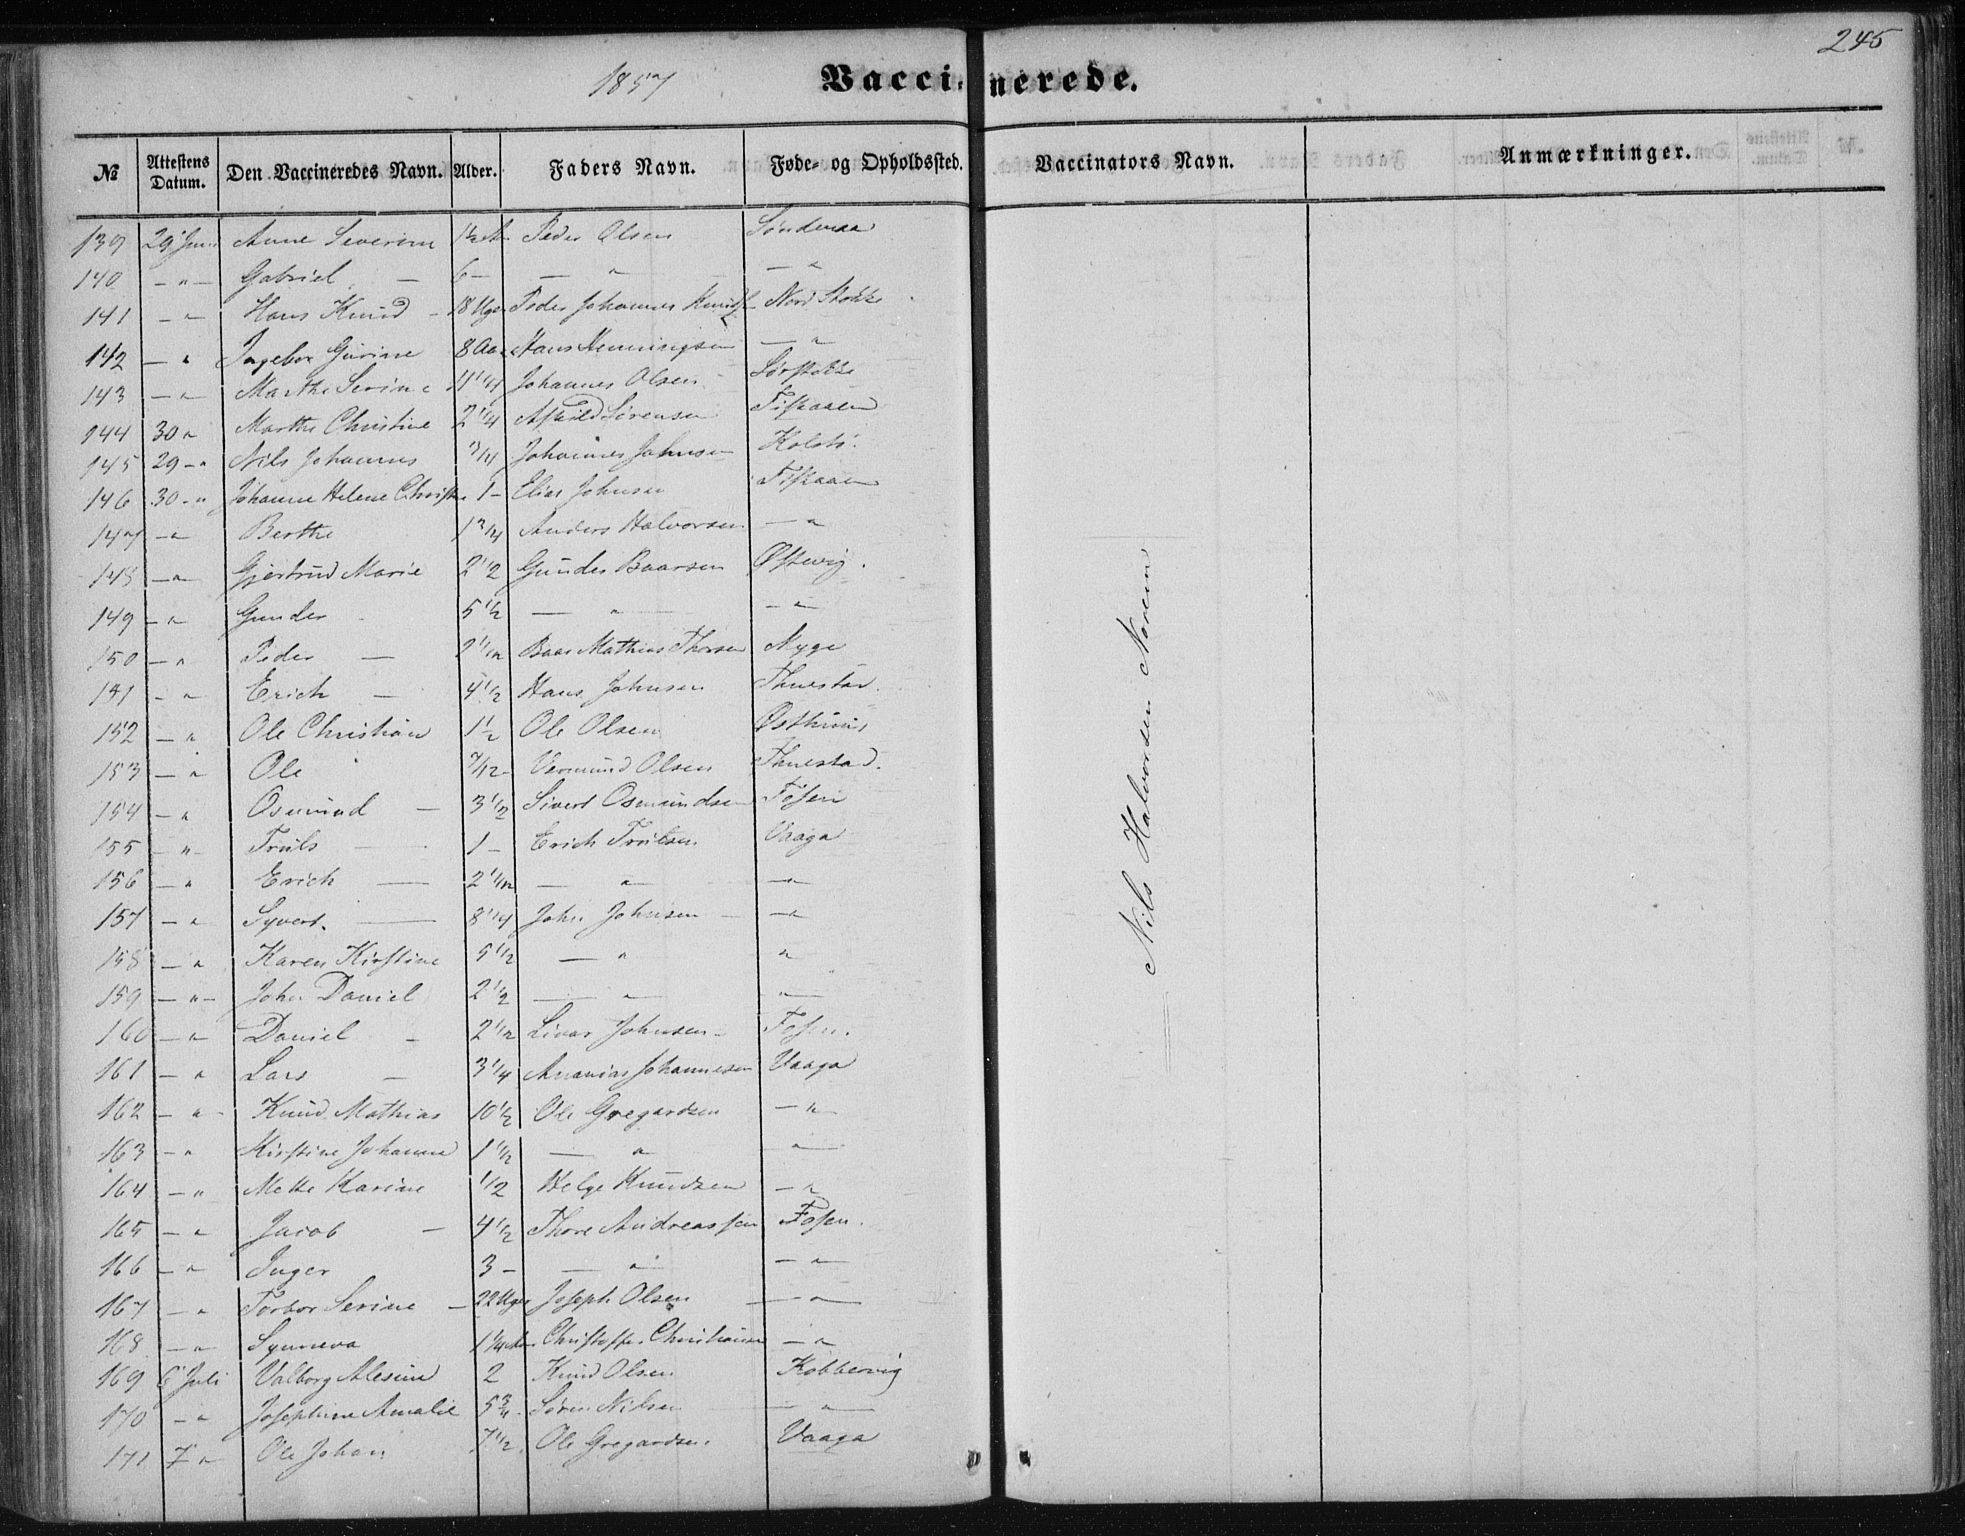 245
1857
Vaccinerede.
№ Attestens Datum. Den Vaccineredes Navn. Alder. Faders Navn. Føde- og Opholdssted. Vaccinators Navn. Anmærkninger.
139 29 Juni Anne Severine 1½ Peder Olsen
140 — " — Gabriel — 6 — — " — "
141 — " Hans Knud — 18 Uger Peder Johannes Nord Stokke
142 — " Ingebor Gurine 8 Aar Hans Henningsen — "
143 — " Marthe Serine 11 1/4 Johannes Olsen Sørstokke
144 30 " Marthe Christine 2 1/4 Askild Sørensen Fiskaaen
145 29 - " Nils Johannes 3/4 Johannes Johnsen Kolstø.
146 30 - " Johanne Helene 1 — Elias Johnsen Fiskaaen
147 — " Berthe 1 3/4 Anders Halvorsen — "
148 — " Gjertrud Marie 2 1/2 Gunder Baarsen Østevig.
149 — " Gunder 5 1/2 — " — "
150 — " Peder — 2 1/2 Baar Mathias Thorsen Myge
151 — " Erich — 4 1/2 Hans Johnsen Thuestad.
152 — " Ole Christian 1 1/2 Ole Olsen
153 — " Ole 7/12 Vermund Olsen Thuestad.
154 — " Osmund — 3 1/2 Sivert Osmundsen Fosen
155 — " — Truls — 1 — Erich Trulsen. Vaaga
156 — " Erich — 2 1/2 — " — "
157 — " Syvert. — 8 1/4 John Johnsen — "
158 — " Karen Kirstine 5 1/2 — " "
159 — " — John Daniel 2 1/2 — " — "
160 — " Daniel — 2 1/2 Livar Johnsen — Fosen.
161 — " Lars — 3 1/4 Ananias Johannesen Vaaga
162 — " — Knud Mathias 10 1/2 Ole Gregardsen — " —
163 — " Kirstine Johanne 1 1/2 — " "
164 — " Mette Karine 1/2 Helge Knudsen — "
165 — " Jacob — 4 1/2 Thore Andreassen Fosen.
166 — " Inger 3 — — " — "
167 — " Torbor Serine — 22 Uger Joseph Olsen — " —
168 — " Synneva 1 1/4 Christopher Christiansen — "
169 6 Juli Valborg Alesine 2 Knud Olsen Kobbervig
170 — " Josephine Amalie 5 3/4 Søren Nilsen — " —
171 7 " Ole Johan 7 1/2 Ole Gregardsen. Vaaga
Nils Halvorsen Norem